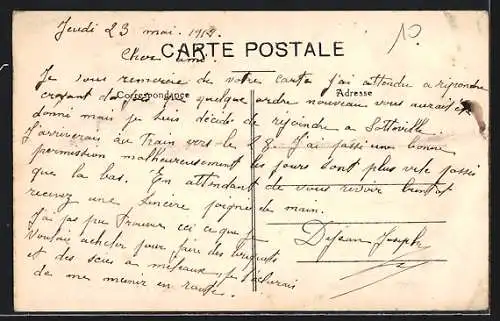 Jeudi 23 mai 191
Cher ami
CARTE POSTALE
Je vous remercie de votre carte j'ai attendu a repondre
Correspondance
Adresse
croyant que quelque ordre nouveau vous aurait été
donné mais je suis décidé de rejoindre a Sotteville
J'arriverais au train vers le 28. J'ai passé une bonne
permission malheureusement les jours sont plus vite passé
que la bas. En attendant de vous revoir bientot
recevez une sincère poignée de main.
J'ai pas pu trouver ici ce que je
Dejean Joseph
voulai acheter pour faire des briquets
et des scies a meteaux, je
de me mener en route.